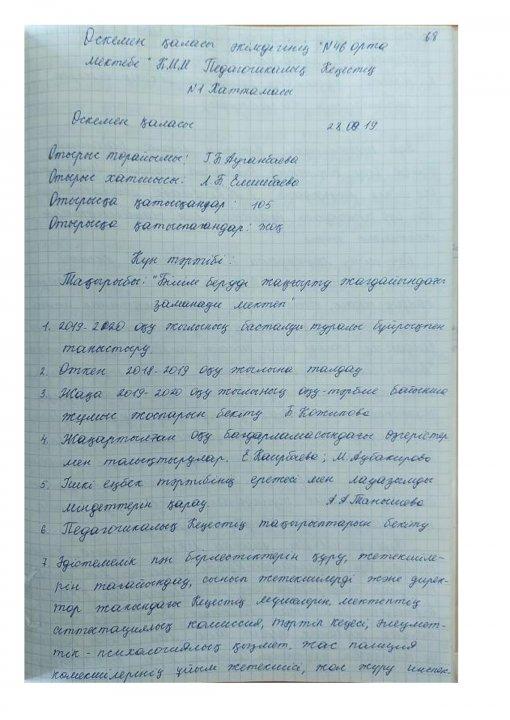 68
Өскемен қаласы әкімдегінің "№46 орта
мектебі" КММ Педагогикалық Кеңестің
№1 Хаттамасы
Өскемен қаласы 28.08.19
Отырыс төрайымы: Г.Б Ауганбаева
Отырыс хатшысы: Л.Б. Елшибаева
Отырысқа қатысқандар: 105
Отырысқа қатыспағандар: жоқ
Күн тәртібі:
Тақырыбы: "Білім беруді жаңғырту жағдайындағы
заманауи мектеп"
1. 2019-2020 оқу жылының басталуы туралы бұйрықпен
таныстыру
2. Өткен 2018-2019 оқу жылына талдау
3. Жаңа 2019-2020 оқу жылының оқу-тәрбие бағытына
жұмыс жоспарын бекіту Б Кожипова
4. Жаңартылған оқу бағдарламасындағы өзгерістер
мен толықтырулар. Е Каирбаева; М. Аубакирова
5. Ішкі еңбек тәртібінің ережесі мен лауазымды
міндеттерін қарау. А.А Танышева
6. Педагогикалық Кеңестің тақырыптарын бекіту
7. Әдістемелік пән бірлестіктерін құру, жетекшіле-
рін тағайындау, сынып жетекшілерді және дирек-
тор жанындағы Кеңестің мүшелерін, мектептің
аттестациялық комиссия, тәртіп кеңесі, әлеумет-
тік-психологиялық қызмет. жас полиция
көмекшілерінің ұйым жетекшісі, жол жүру инспек-